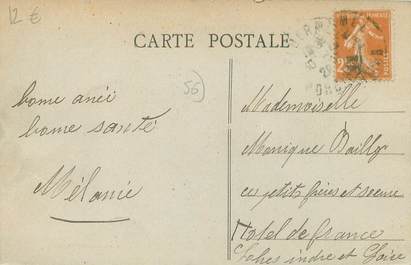 12 €
CARTE POSTALE
56
bonne anéi
bonne santé
Mélanie
Mademoiselle
Monique Bailly
ces petits frères et soeure
Hotel de france
Loches indre et Loire